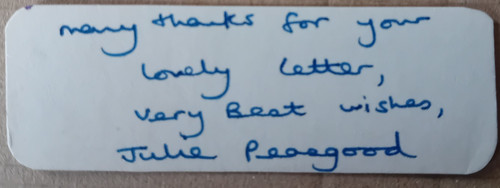 many thanks for your
lovely letter,
very Best wishes,
Julie Peasgood